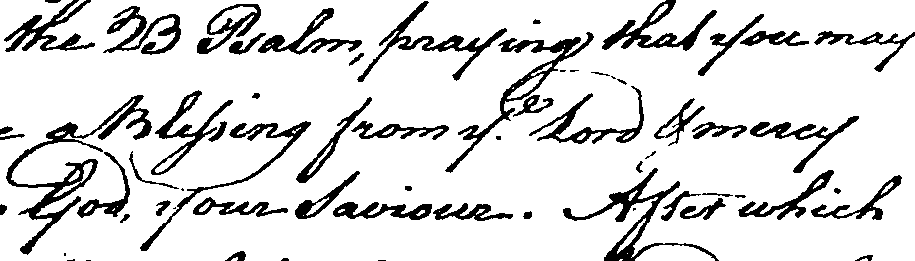 the 23 Psalm, praying that you may
a Blessing from ye. Lord & mercy
God, your Saviour. After which